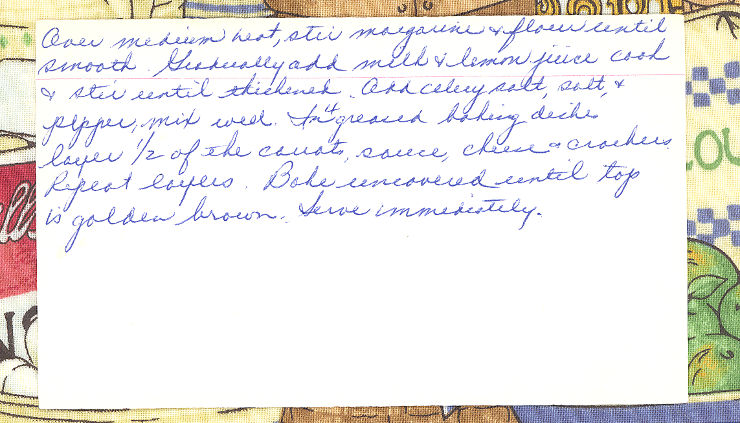 Over medium heat, stir margarine & flour until
smooth. Gradually add milk & lemon juice cook
& stir until thickened. Add celery salt, salt, &
pepper, mix well. In 4 greased baking dishes
layer 1/2 of the carrots, sauce, cheese & crackers
Repeat layers. Bake uncovered until top
is golden brown. Serve immediately.
OU